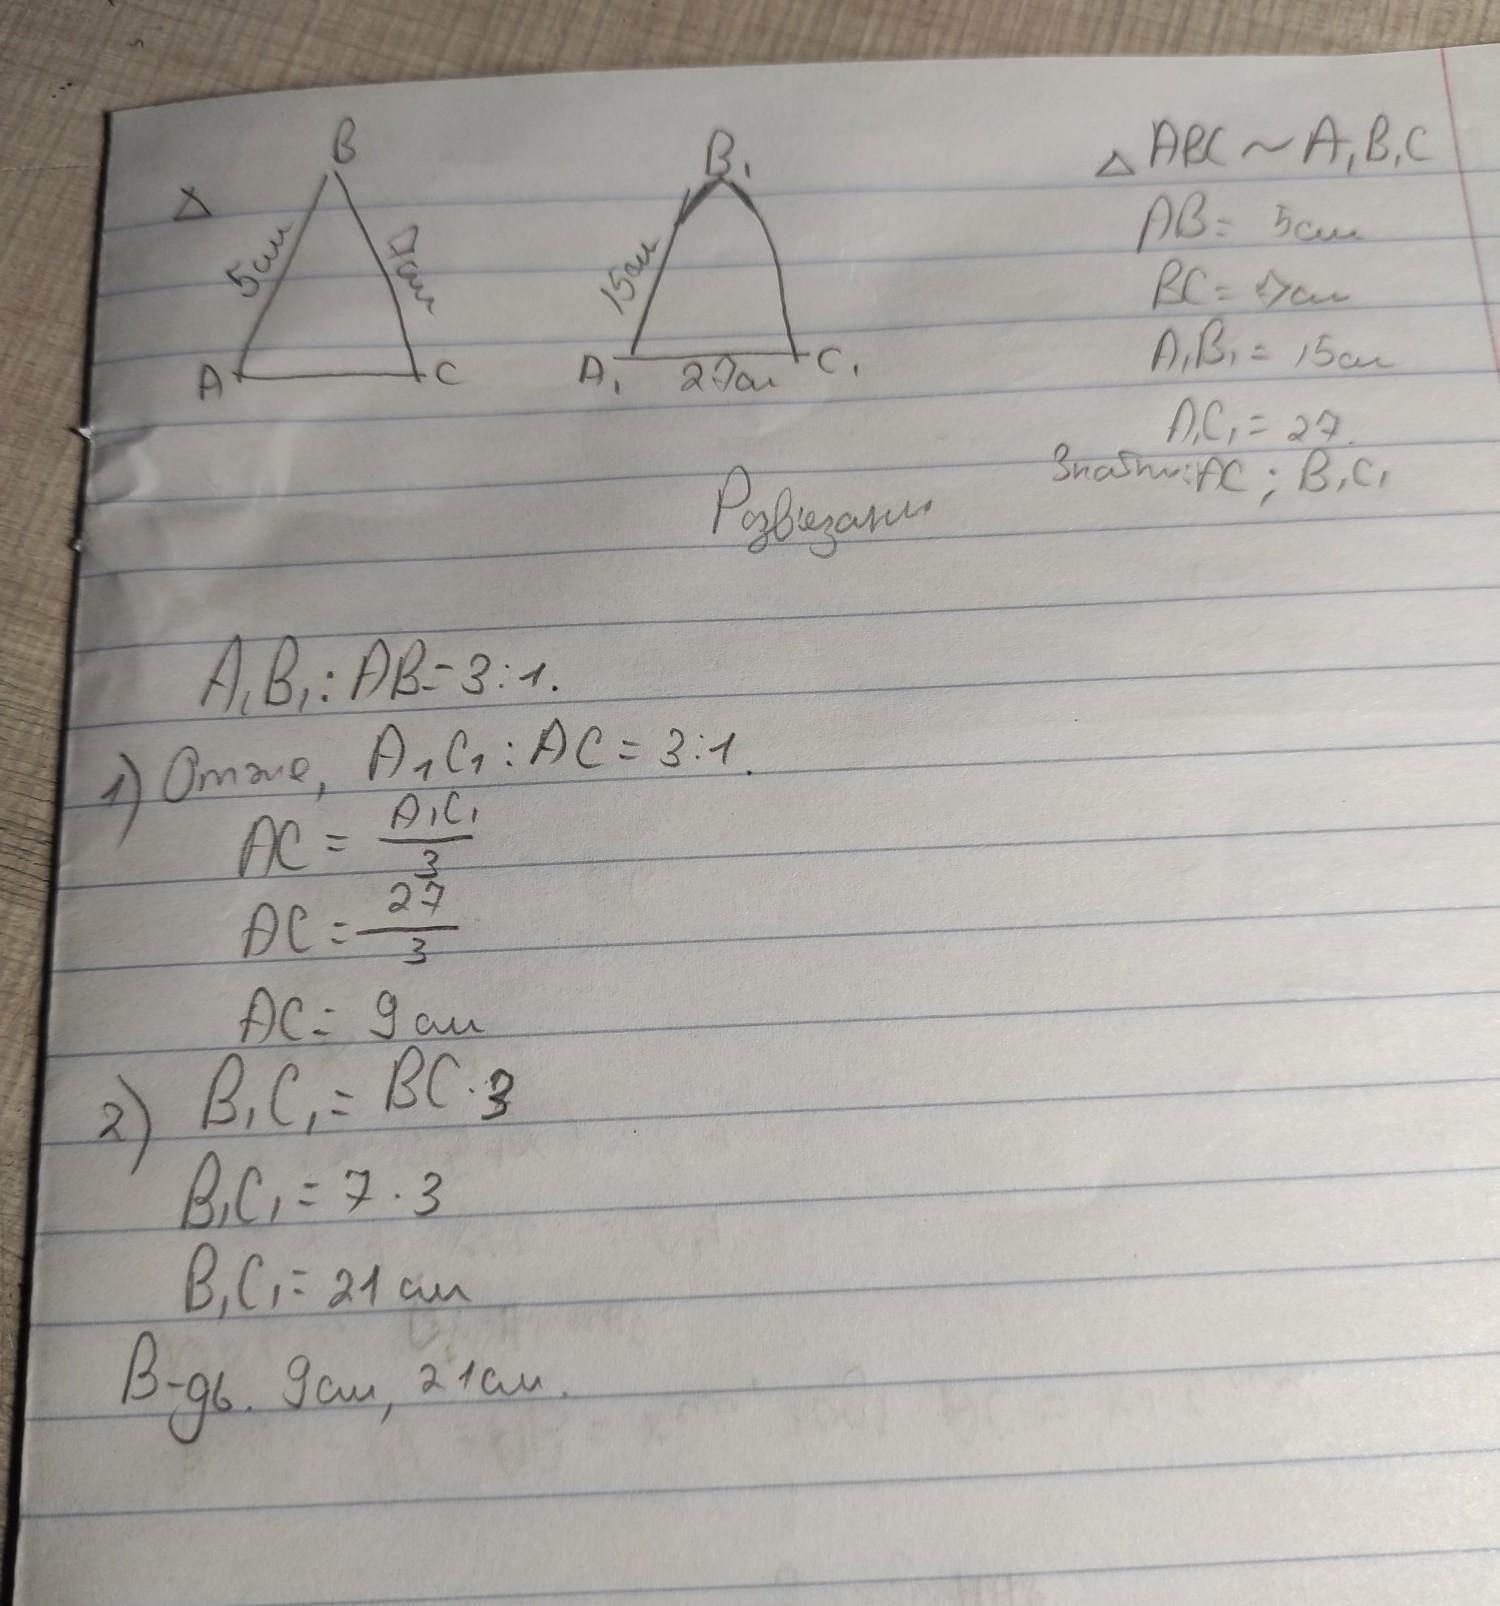 B
5см
7см
A
C
B₁
15см
A₁
27см
C₁
△ ABC ~ A₁B₁C
AB = 5см
BC = 7см
A₁B₁ = 15см
A₁C₁ = 27.
Знайти: AC ; B₁C₁
Розв'язання
A₁B₁ : AB = 3:1.
1) Отже, A₁C₁ : AC = 3:1.
AC = A₁C₁/3
AC = 27/3
AC = 9см
2) B₁C₁ = BC · 3
B₁C₁ = 7 · 3
B₁C₁ = 21 см
В-дь. 9см, 21см.